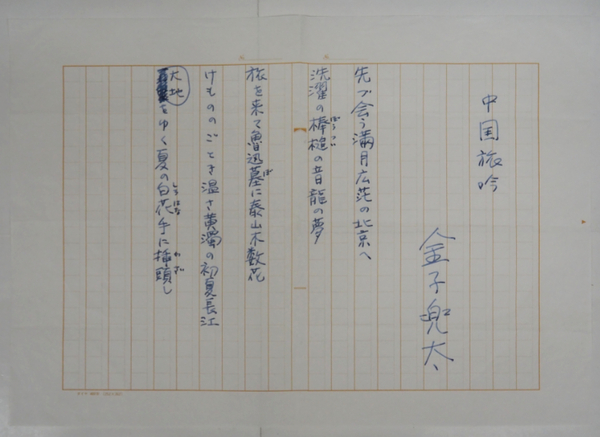 中国旅吟
金子兜太
先づ会う満月広茫の北京へ
洗濯の棒槌の音龍の夢
旅を来て魯迅墓に泰山木数花
けもののごとき温さ黄濁の初夏長江
大地をゆく夏の白花手に指頭し